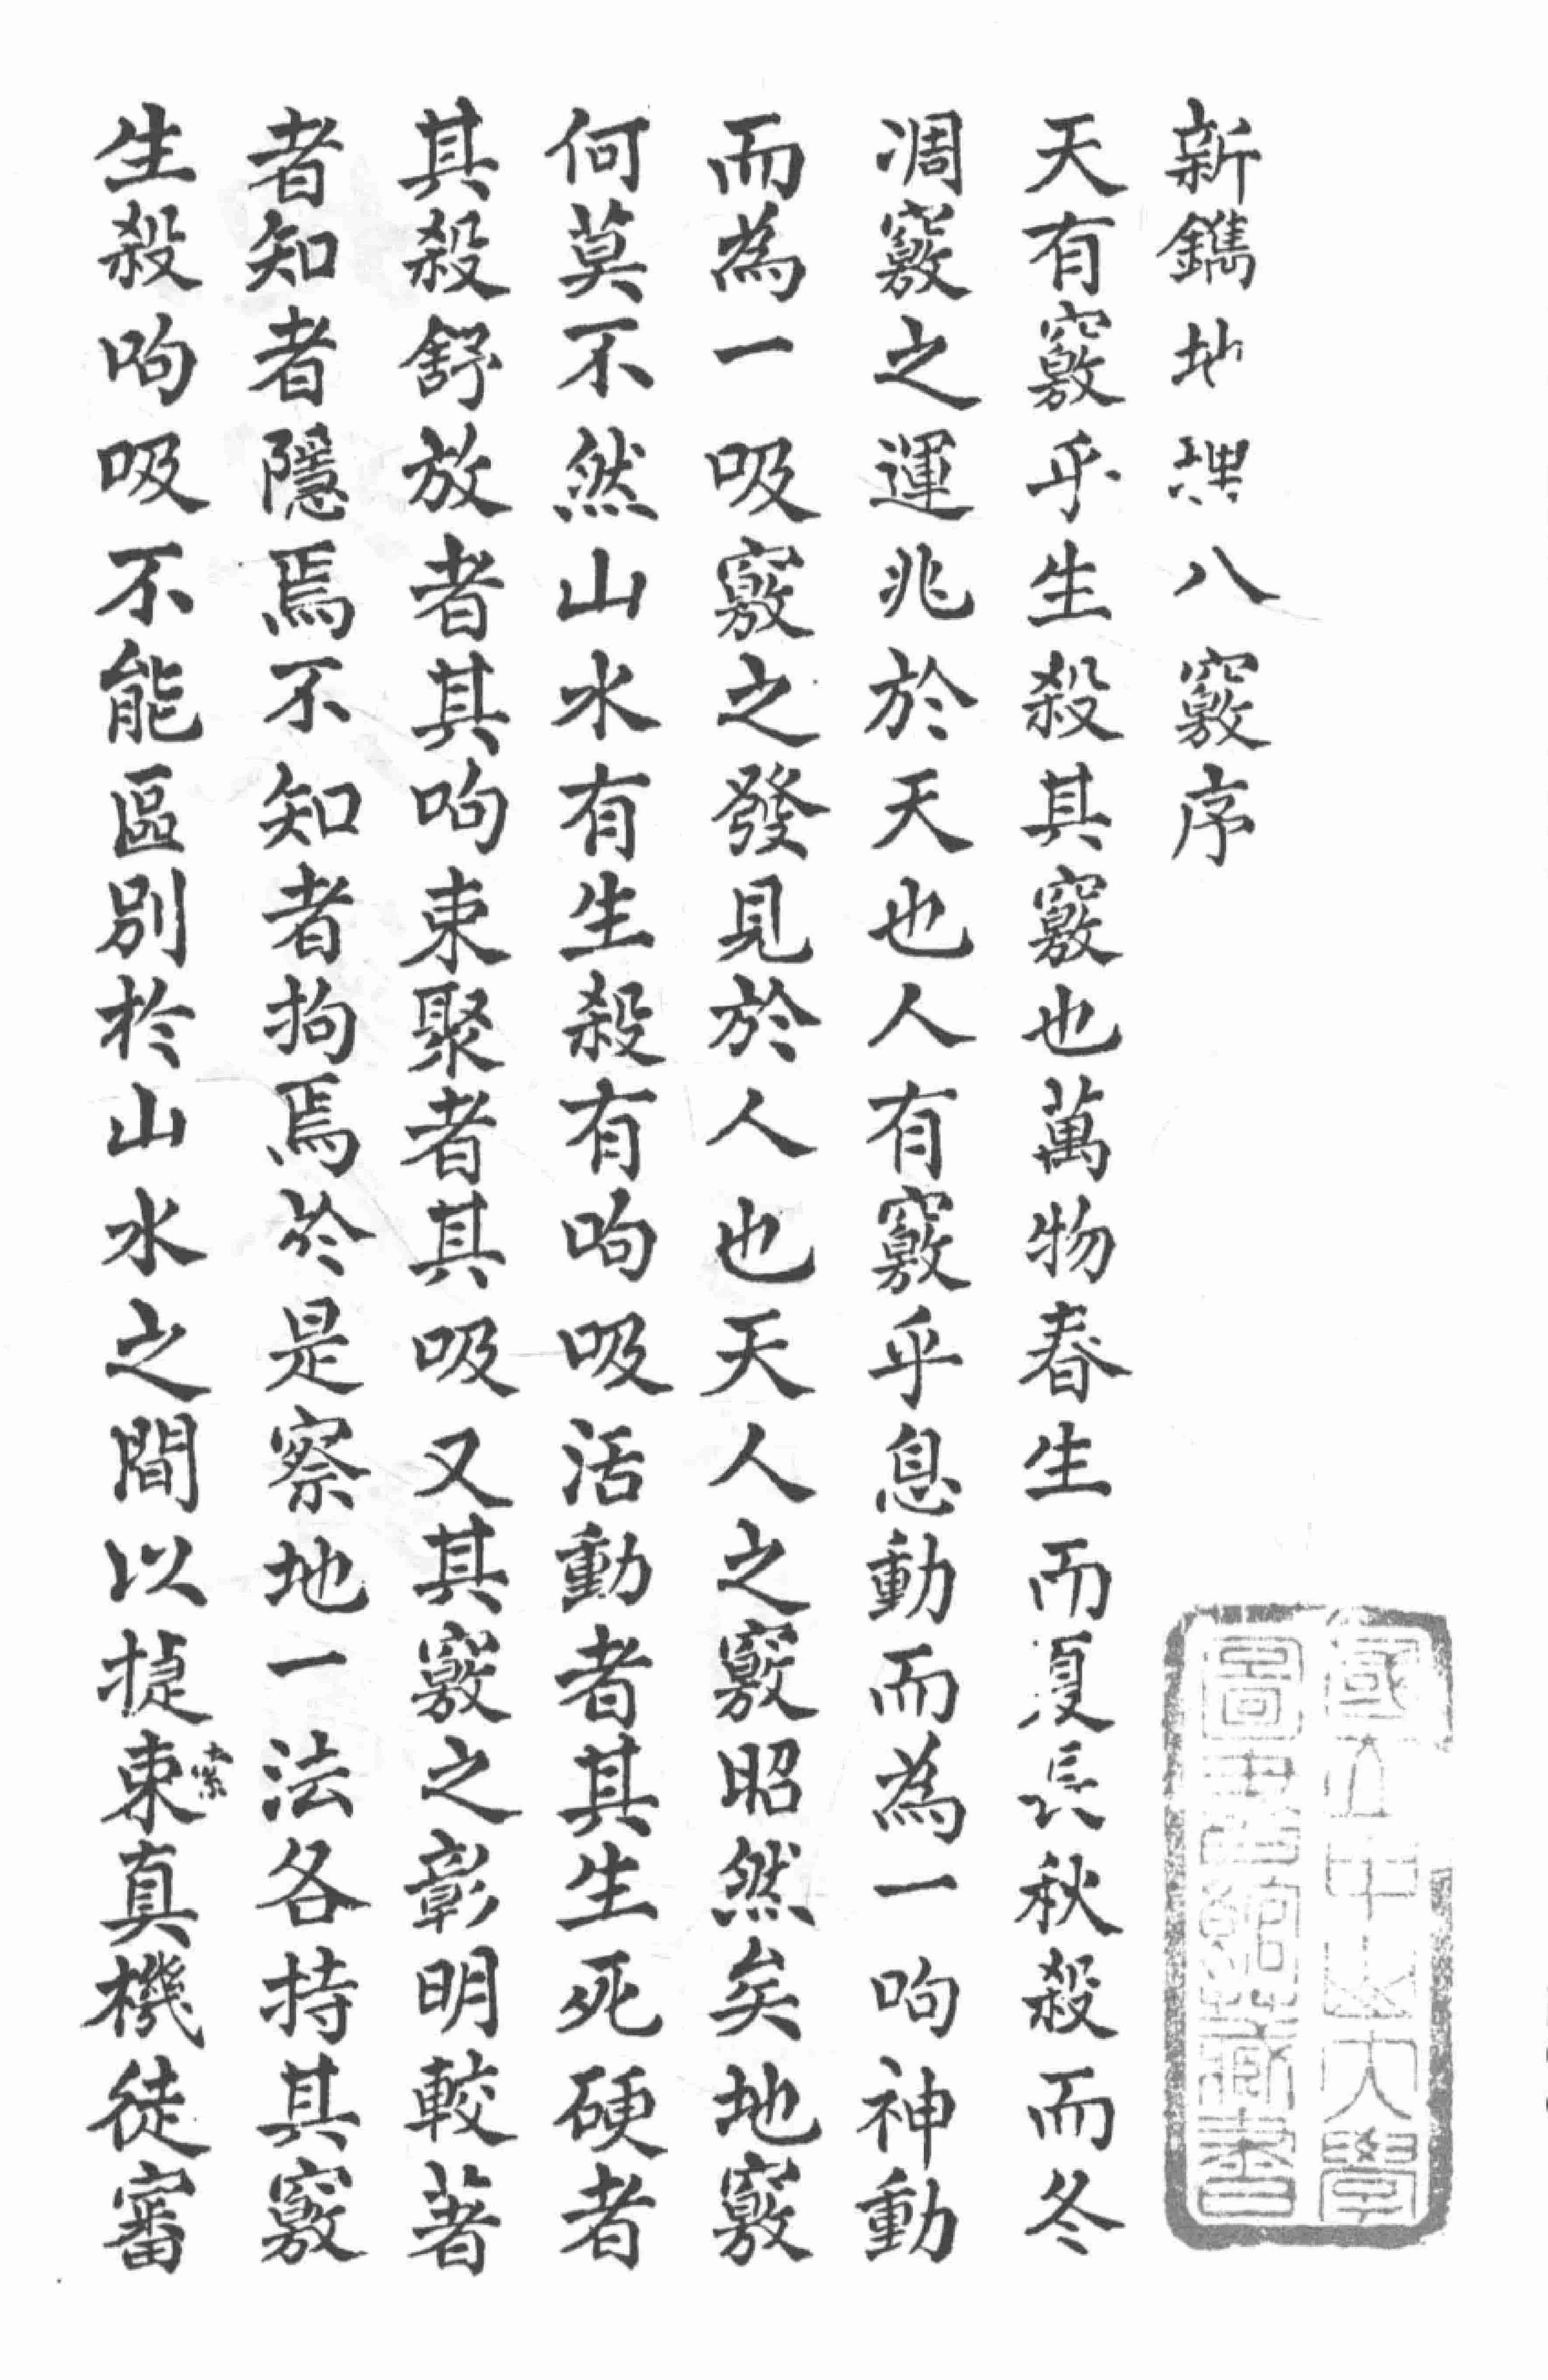 新鐫地理八竅序
天有竅乎生殺其竅也萬物春生而夏長秋殺而冬
凋竅之運兆於天也人有竅乎息動而為一呴神動
而為一吸竅之發見於人也天人之竅昭然矣地竅
何莫不然山水有生殺有呴吸活動者其生死硬者
其殺舒放者其呴束聚者其吸又其竅之彰明較著
者知者隱焉不知者拘焉於是察地一法各持其竅
生殺呴吸不能區別於山水之間以捷束真機徒審
索
國立中山大學
圖書館藏書